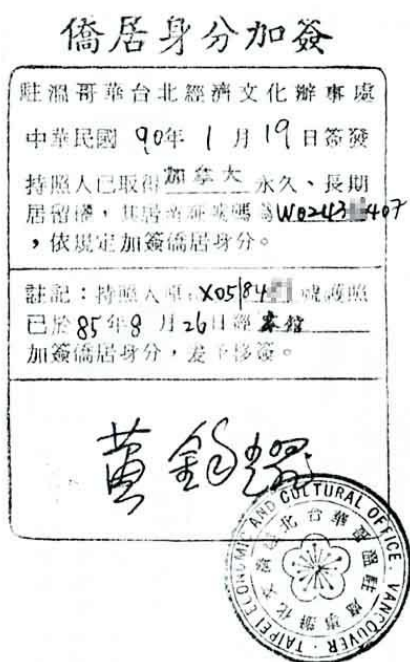 僑居身分加簽
駐溫哥華台北經濟文化辦事處
中華民國 90年 1月19日簽發
持照人已取得加拿大永久、長期
居留權，其居留證號碼為W0243 407
，依規定加簽僑居身分。
註記：持照人原 X05184 號護照
已於85年8月26日經本館
加簽僑居身分，爰予移簽。
黃
TAIPEI ECONOMIC AND CULTURAL OFFICE, VANCOUVER
駐溫哥華台北經濟文化辦事處